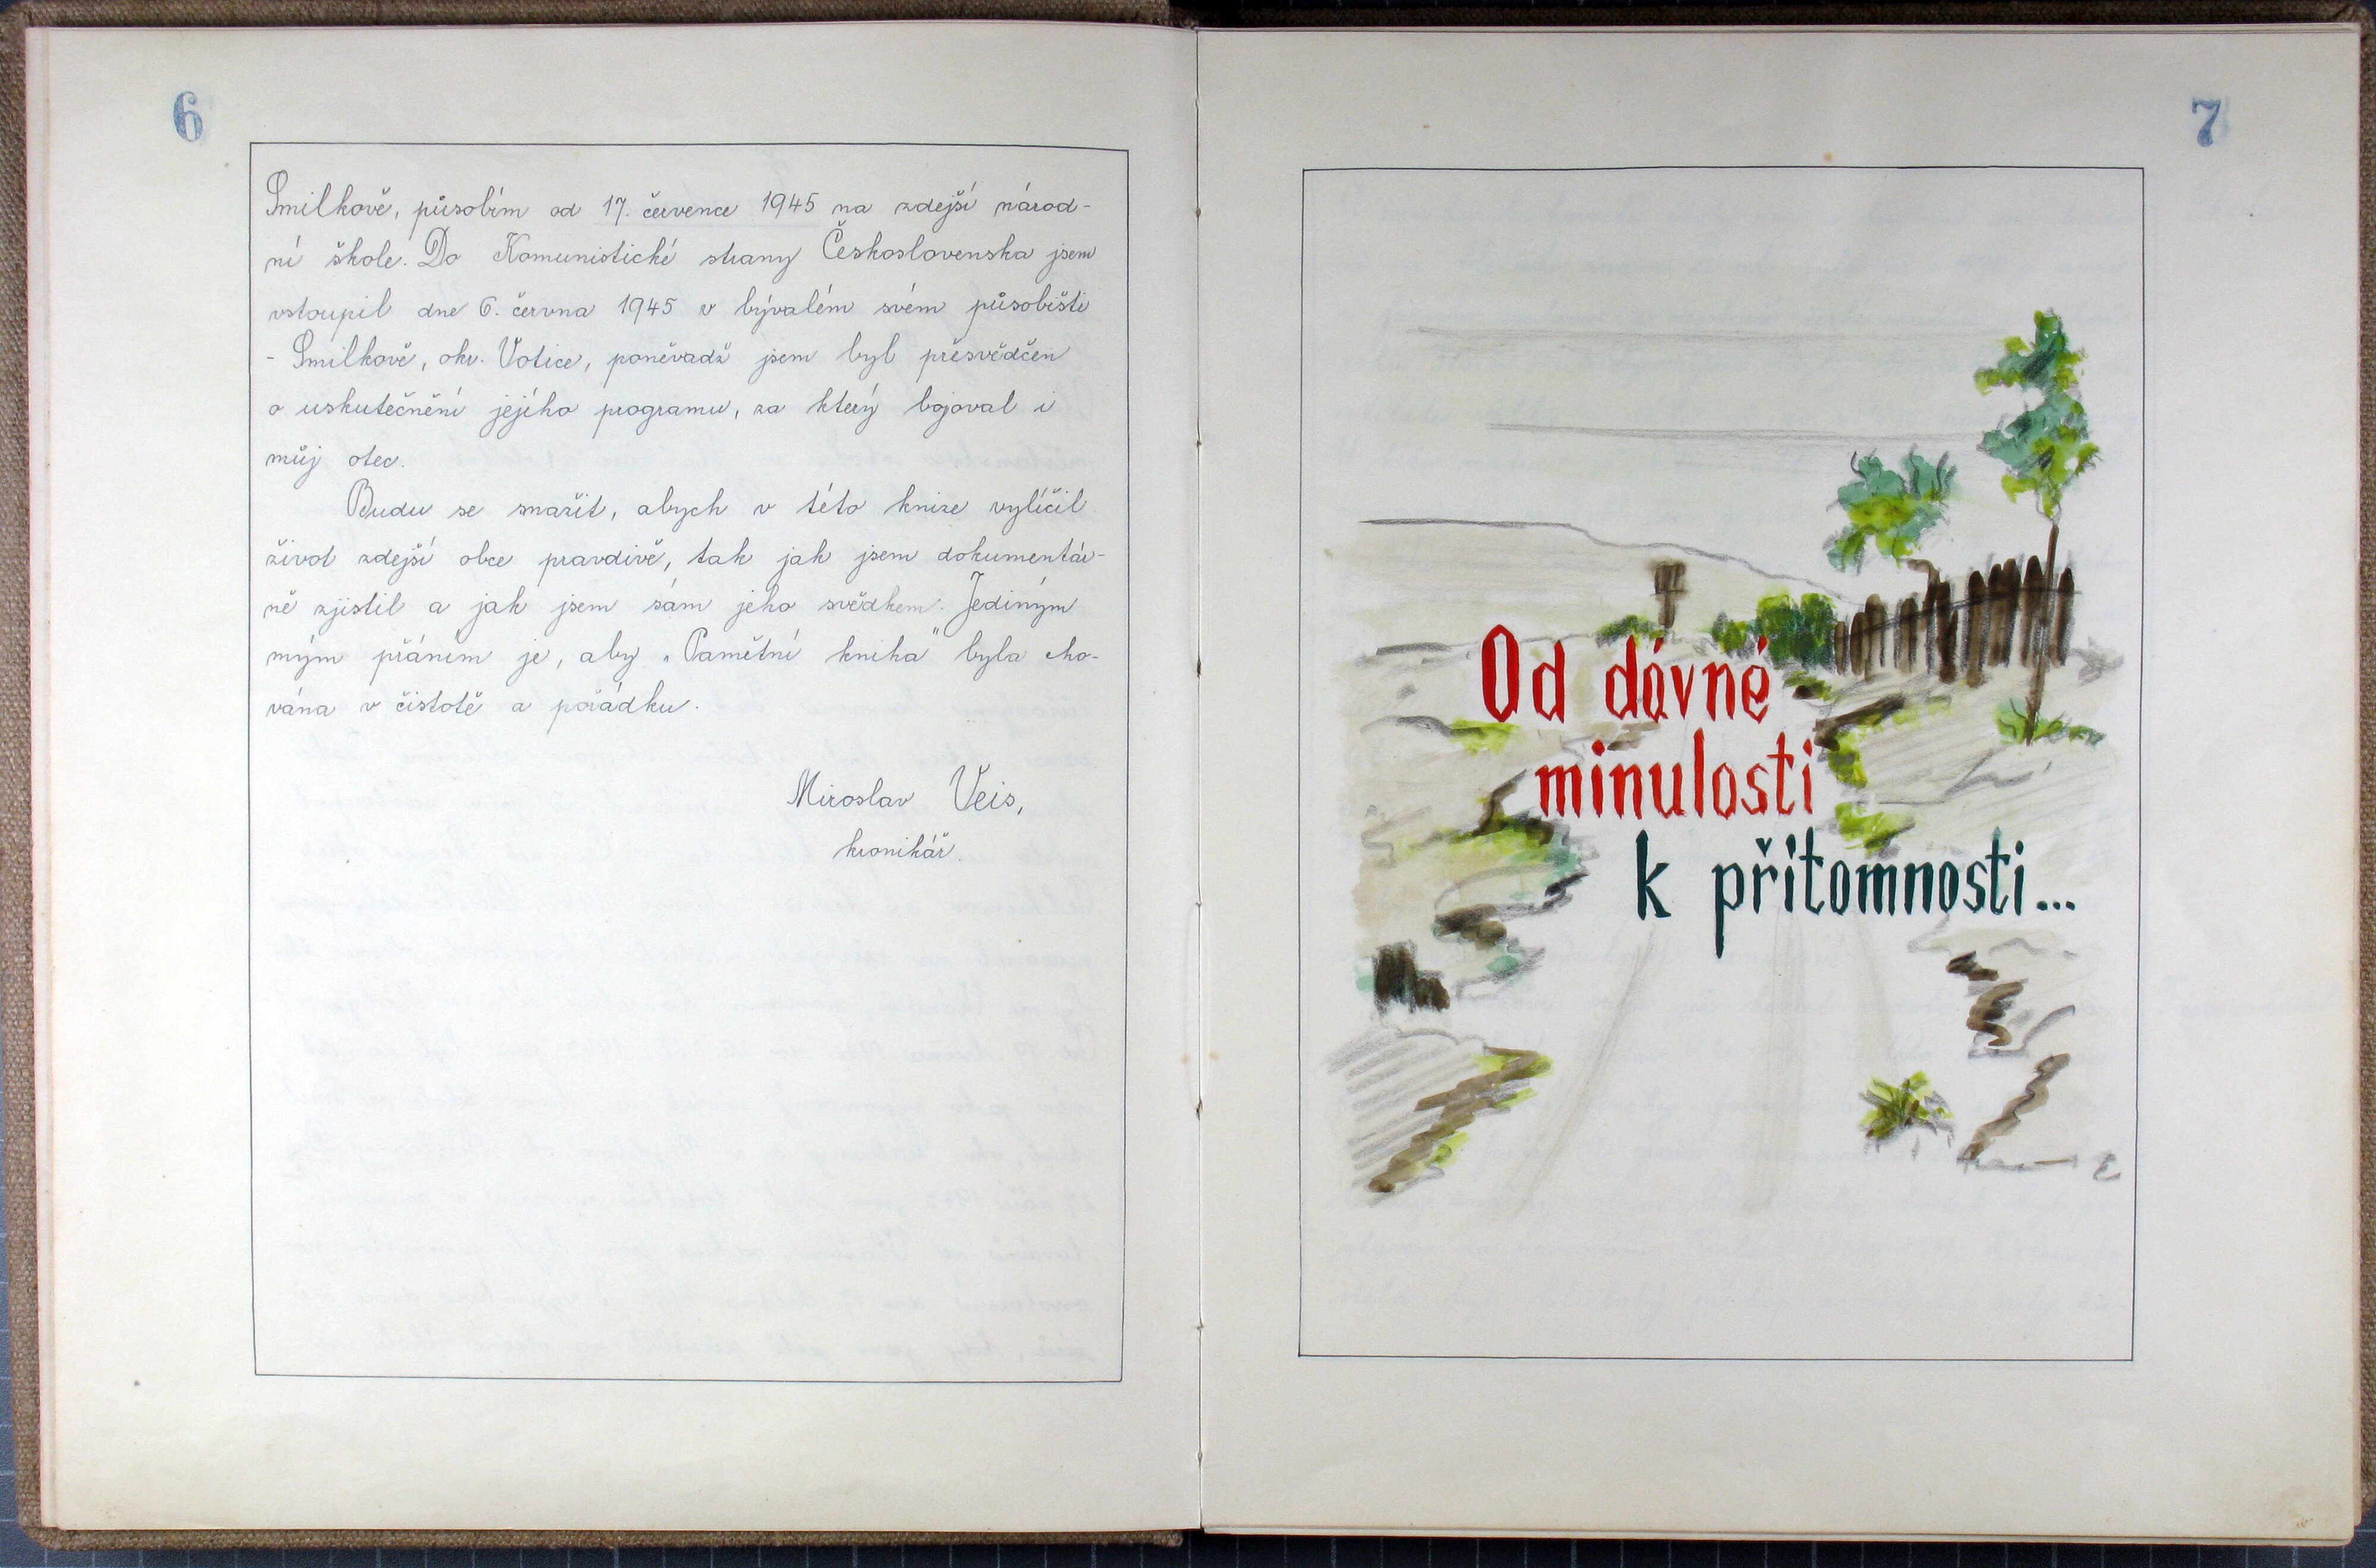 6
Smilkově, působím od 17. července 1945 na zdejší národ-
ní škole. Do Komunistické strany Československa jsem
vstoupil dne 6. června 1945 v bývalém svém působišti
- Smilkově, okr. Votice, poněvadž jsem byl přesvědčen
o uskutečnění jejího programu, za který bojoval i
můj otec.
Budu se snažit, abych v této knize vylíčil
život zdejší obce pravdivě, tak jak jsem dokumentár-
ně zjistil a jak jsem sám jeho svědkem. Jediným
mým přáním je, aby „Pamětní kniha" byla cho-
vána v čistotě a pořádku.
Miroslav Veis,
kronikář.
7
Od dávné
minulosti
k přítomnosti...